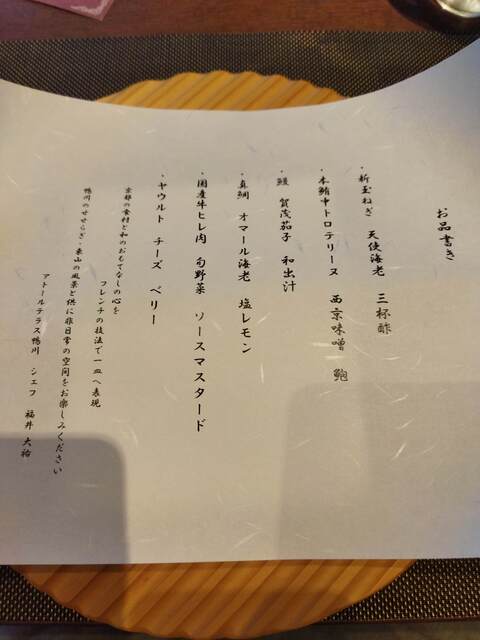 お品書き
・新玉ねぎ 天使海老 三杯酢
・本鮪中トロテリーヌ 西京味噌 鮑
・鰻 賀茂茄子 和出汁
・真鯛 オマール海老 塩レモン
・国産牛ヒレ肉 旬野菜 ソースマスタード
・ヤウルト チーズ ベリー
京都の食材と和のおもてなしの心を
フレンチの技法で一皿へ表現
鴨川のせせらぎ・東山の風景と供に非日常の空間をお楽しみください
アトールテラス鴨川 シェフ 福井 大祐